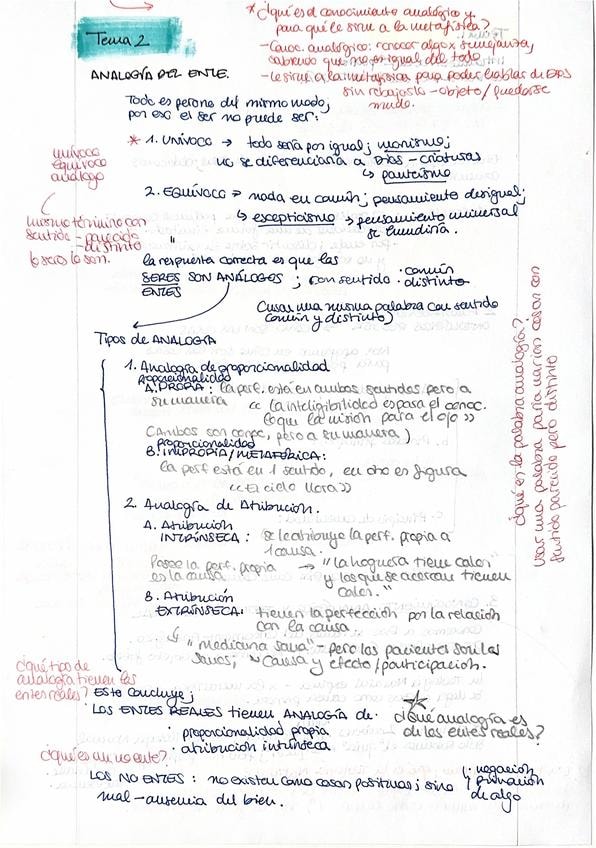 * ¿Qué es el conocimiento analógico y
para qué le sirve a la metafísica?
- Conoc. analógico: conocer algo x semejanza,
sabiendo que no es igual del todo
- Le sirve a la metafísica para poder hablar de DIOS
sin rebajarlo - objeto/
mundo.
Tema 2
ANALOGÍA DEL ENTE.
Todo es pero no del mismo modo,
por eso el ser no puede ser:
* 1. UNÍVOCO → todo sería por igual; monismo;
no se diferenciaría a Dios - criaturas
↳ panteísmo
unívoco
equívoco
análogo
2. EQUÍVOCO → nada en común; pensamiento desigual;
↳ escepticismo → pensamiento universal
se hundiría.
mismo término con
sentido - parecido
- distinto
lo seres lo son.
"
la respuesta correcta es que los
SERES SON ANÁLOGOS ; con sentido · común
ENTES · distinto
(usar una misma palabra con sentido
común y distinto)
Tipos de ANALOGÍA
1. Analogía de proporcionalidad
proporcionalidad
A. PROPIA: la perf. está en ambos sentidos pero a
su manera << la inteligibilidad es para el conoc.
lo que la visión para el ojo >>
(Ambos son conoc, pero a su manera)
proporcionalidad
B. IMPROPIA/METAFÓRICA:
la perf está en 1 sentido, en otro es figura
<< El cielo llora >>
2. Analogía de Atribución.
A. Atribución
INTRÍNSECA: se le atribuye la perf. propia a
1 causa.
Posee la perf. propia → "la hoguera tiene calor
es la causa y los que se acercan tienen
calor."
B. Atribución
EXTRÍNSECA: tienen la perfección por la relación
con la causa.
↳ "medicina sana" - pero los pacientes son los
sanos; causa y efecto/participación.
¿Qué es la palabra analogía?
Usar una palabra para varias cosas con
sentido parecido pero distinto
¿qué tipo de
analogía tienen los
entes reales?
Esto concluye;
LOS ENTES REALES tienen ANALOGÍA DE:
· proporcionalidad propia
· atribución intrínseca
¿Qué analogía es
de los entes reales?
¿qué es un no ente?
LOS NO ENTES: no existen como cosas positivas; sino · negación
· privación
de algo
mal - ausencia del bien.